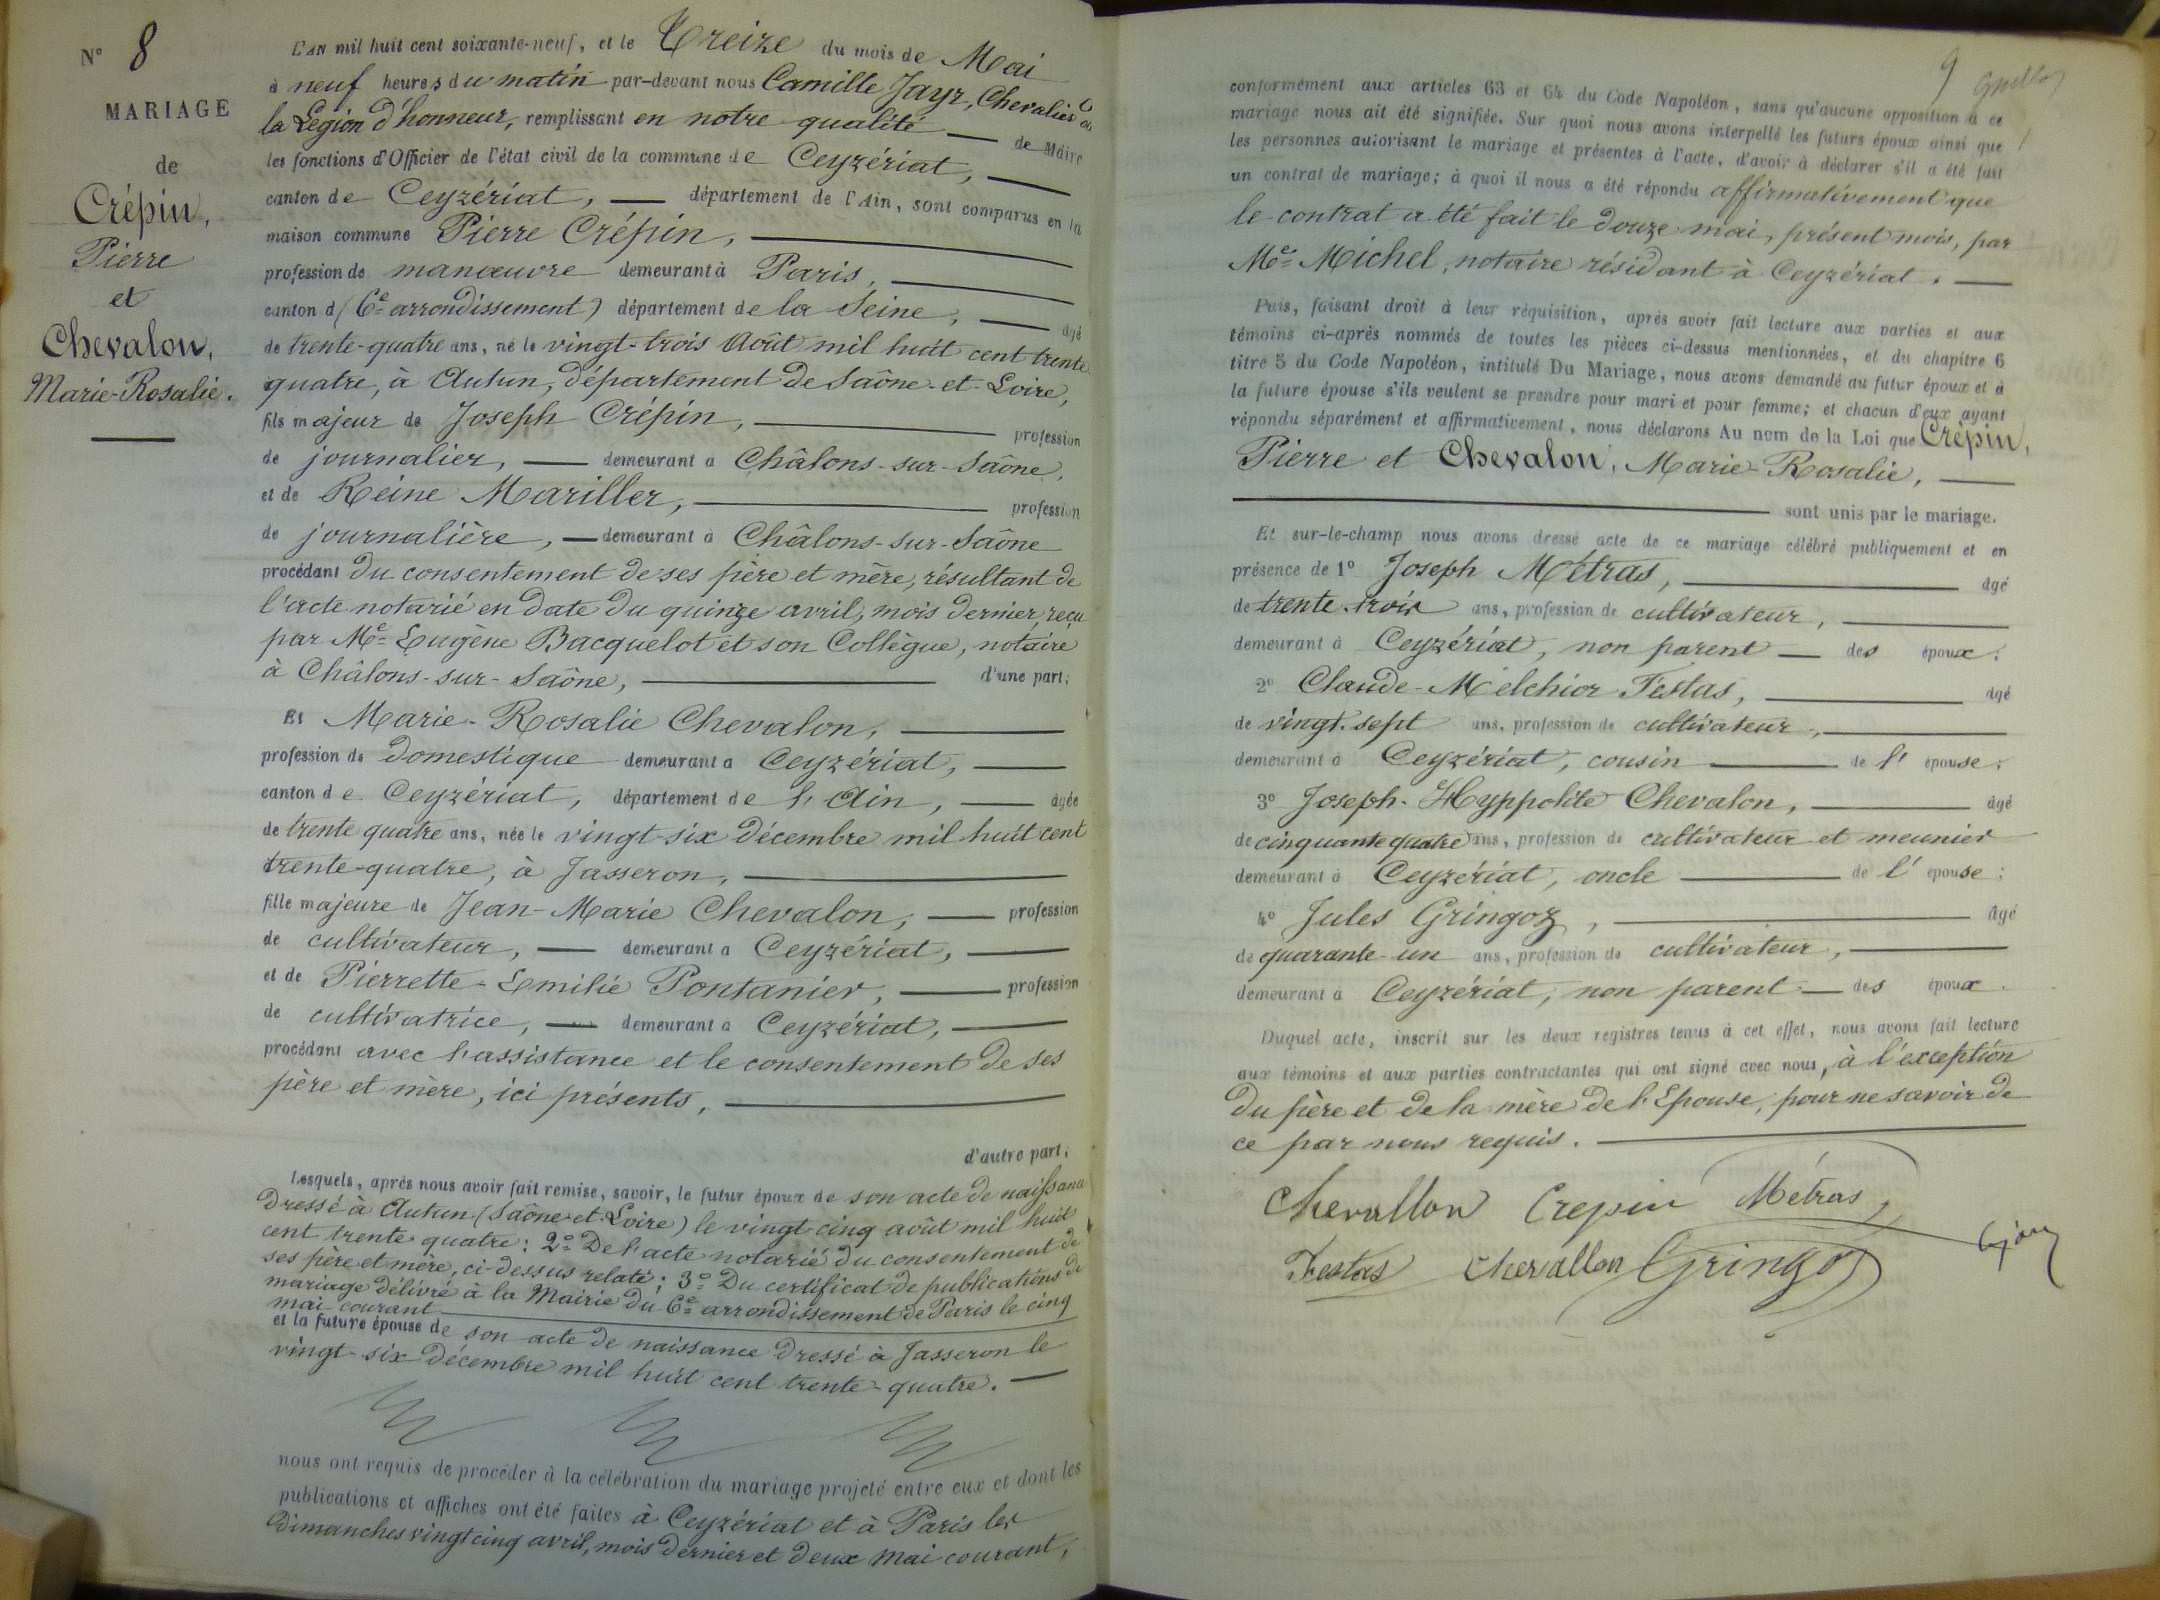 N° 8
MARIAGE
de
Crépin,
Pierre
et
Chevalon,
Marie-Rosalie.
L'AN mil huit cent soixante-neuf, et le Treize du mois de Mai
à neuf heures du matin par-devant nous Camille Jayr, Chevalier de
la Légion d'honneur, remplissant en notre qualité de Maire
les fonctions d'Officier de l'état civil de la commune de Ceyzériat,
canton de Ceyzériat, département de l'Ain, sont comparus en la
maison commune Pierre Crépin,
profession de manœuvre demeurant à Paris,
canton d (6e arrondissement) département de la Seine, âgé
de trente-quatre ans, né le vingt-trois Août mil huit cent trente
quatre, à Autun, département de Saône-et-Loire,
fils majeur de Joseph Crépin, profession
de journalier, demeurant à Châlons-sur-Saône,
et de Reine Mariller, profession
de journalière, demeurant à Châlons-sur-Saône
procédant du consentement de ses père et mère, résultant de
l'acte notarié en date du quinze avril, mois dernier, reçu
par Me Eugène Bacquelot et son Collègue, notaire
à Châlons-sur-Saône, d'une part;
Et Marie-Rosalie Chevalon,
profession de domestique demeurant à Ceyzériat,
canton de Ceyzériat, département de l'Ain, âgée
de trente quatre ans, née le vingt-six décembre mil huit cent
trente-quatre, à Jasseron,
fille majeure de Jean-Marie Chevalon, profession
de cultivateur, demeurant à Ceyzériat,
et de Pierrette-Emilie Pontanier, profession
de cultivatrice, demeurant à Ceyzériat,
procédant avec l'assistance et le consentement de ses
père et mère, ici présents,
d'autre part;
Lesquels, après nous avoir fait remise, savoir, le futur époux de son acte de naissance
dressé à Autun (Saône et Loire) le vingt-cinq août mil huit
cent trente quatre: 2° De l'acte notarié du consentement de
ses père et mère, ci-dessus relaté; 3° Du certificat de publications de
mariage délivré à la Mairie du 6e arrondissement de Paris le cinq
mai courant
et la future épouse de son acte de naissance dressé à Jasseron le
vingt-six décembre mil huit cent trente-quatre.
nous ont requis de procéder à la célébration du mariage projeté entre eux et dont les
publications et affiches ont été faites à Ceyzériat et à Paris les
dimanches vingt cinq avril, mois dernier et deux mai courant,
9
conformément aux articles 63 et 64 du Code Napoléon, sans qu'aucune opposition à ce
mariage nous ait été signifiée. Sur quoi nous avons interpellé les futurs époux ainsi que
les personnes autorisant le mariage et présentes à l'acte, d'avoir à déclarer s'il a été fait
un contrat de mariage; à quoi il nous a été répondu affirmativement que
le contrat a été fait le douze mai, présent mois, par
Me Michel, notaire résidant à Ceyzériat.
Puis, faisant droit à leur réquisition, après avoir fait lecture aux parties et aux
témoins ci-après nommés de toutes les pièces ci-dessus mentionnées, et du chapitre 6
titre 5 du Code Napoléon, intitulé Du Mariage, nous avons demandé au futur époux et à
la future épouse s'ils veulent se prendre pour mari et pour femme; et chacun d'eux ayant
répondu séparément et affirmativement, nous déclarons Au nom de la Loi que Crépin,
Pierre et Chevalon, Marie-Rosalie,
sont unis par le mariage.
Et sur-le-champ nous avons dressé acte de ce mariage célébré publiquement et en
présence de 1° Joseph Métras, âgé
de trente-trois ans, profession de cultivateur,
demeurant à Ceyzériat, non parent des époux;
2° Claude-Melchior Festas, âgé
de vingt-sept ans, profession de cultivateur,
demeurant à Ceyzériat, cousin de l'épouse;
3° Joseph-Hyppolite Chevalon, âgé
de cinquante quatre ans, profession de cultivateur et meunier
demeurant à Ceyzériat, oncle de l'épouse;
4° Jules Gringoz, âgé
de quarante-un ans, profession de cultivateur,
demeurant à Ceyzériat, non parent des époux.
Duquel acte, inscrit sur les deux registres tenus à cet effet, nous avons fait lecture
aux témoins et aux parties contractantes qui ont signé avec nous, à l'exception
du père et de la mère de l'Epouse, pour ne savoir de
ce par nous requis.
Chevallon Crepin Métras
Festas Chevallon Gringoz